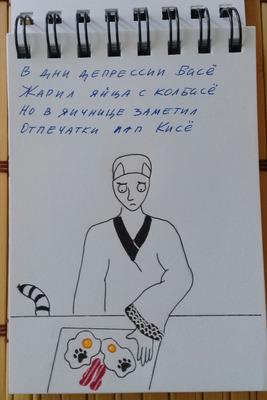 В дни депрессии Басё
Жарил яйца с колбасё
Но в яичнице заметил
Отпечатки лап Кисё